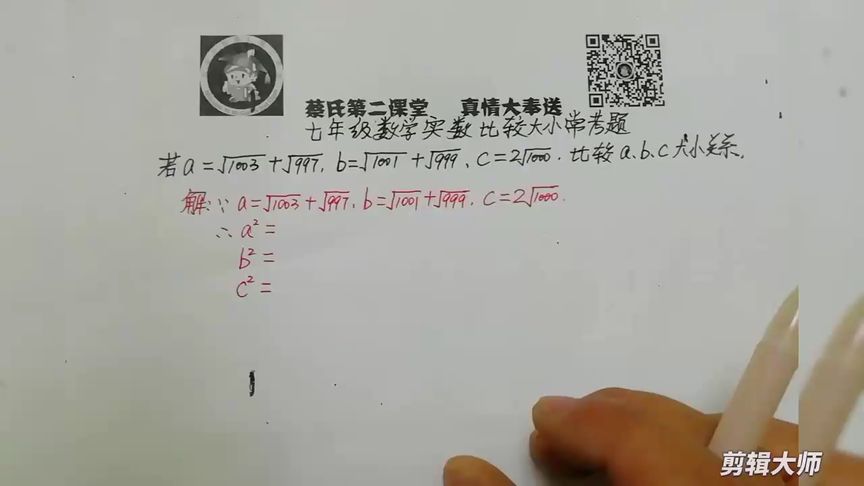 蔡氏第二课堂 真情大奉送
七年级数学实数比较大小常考题
若a=√1003+√997、b=√1001+√999、c=2√1000.比较a、b、c大小关系.
解:∵a=√1003+√997、b=√1001+√999、c=2√1000.
∴a²=
b²=
c²=
剪辑大师